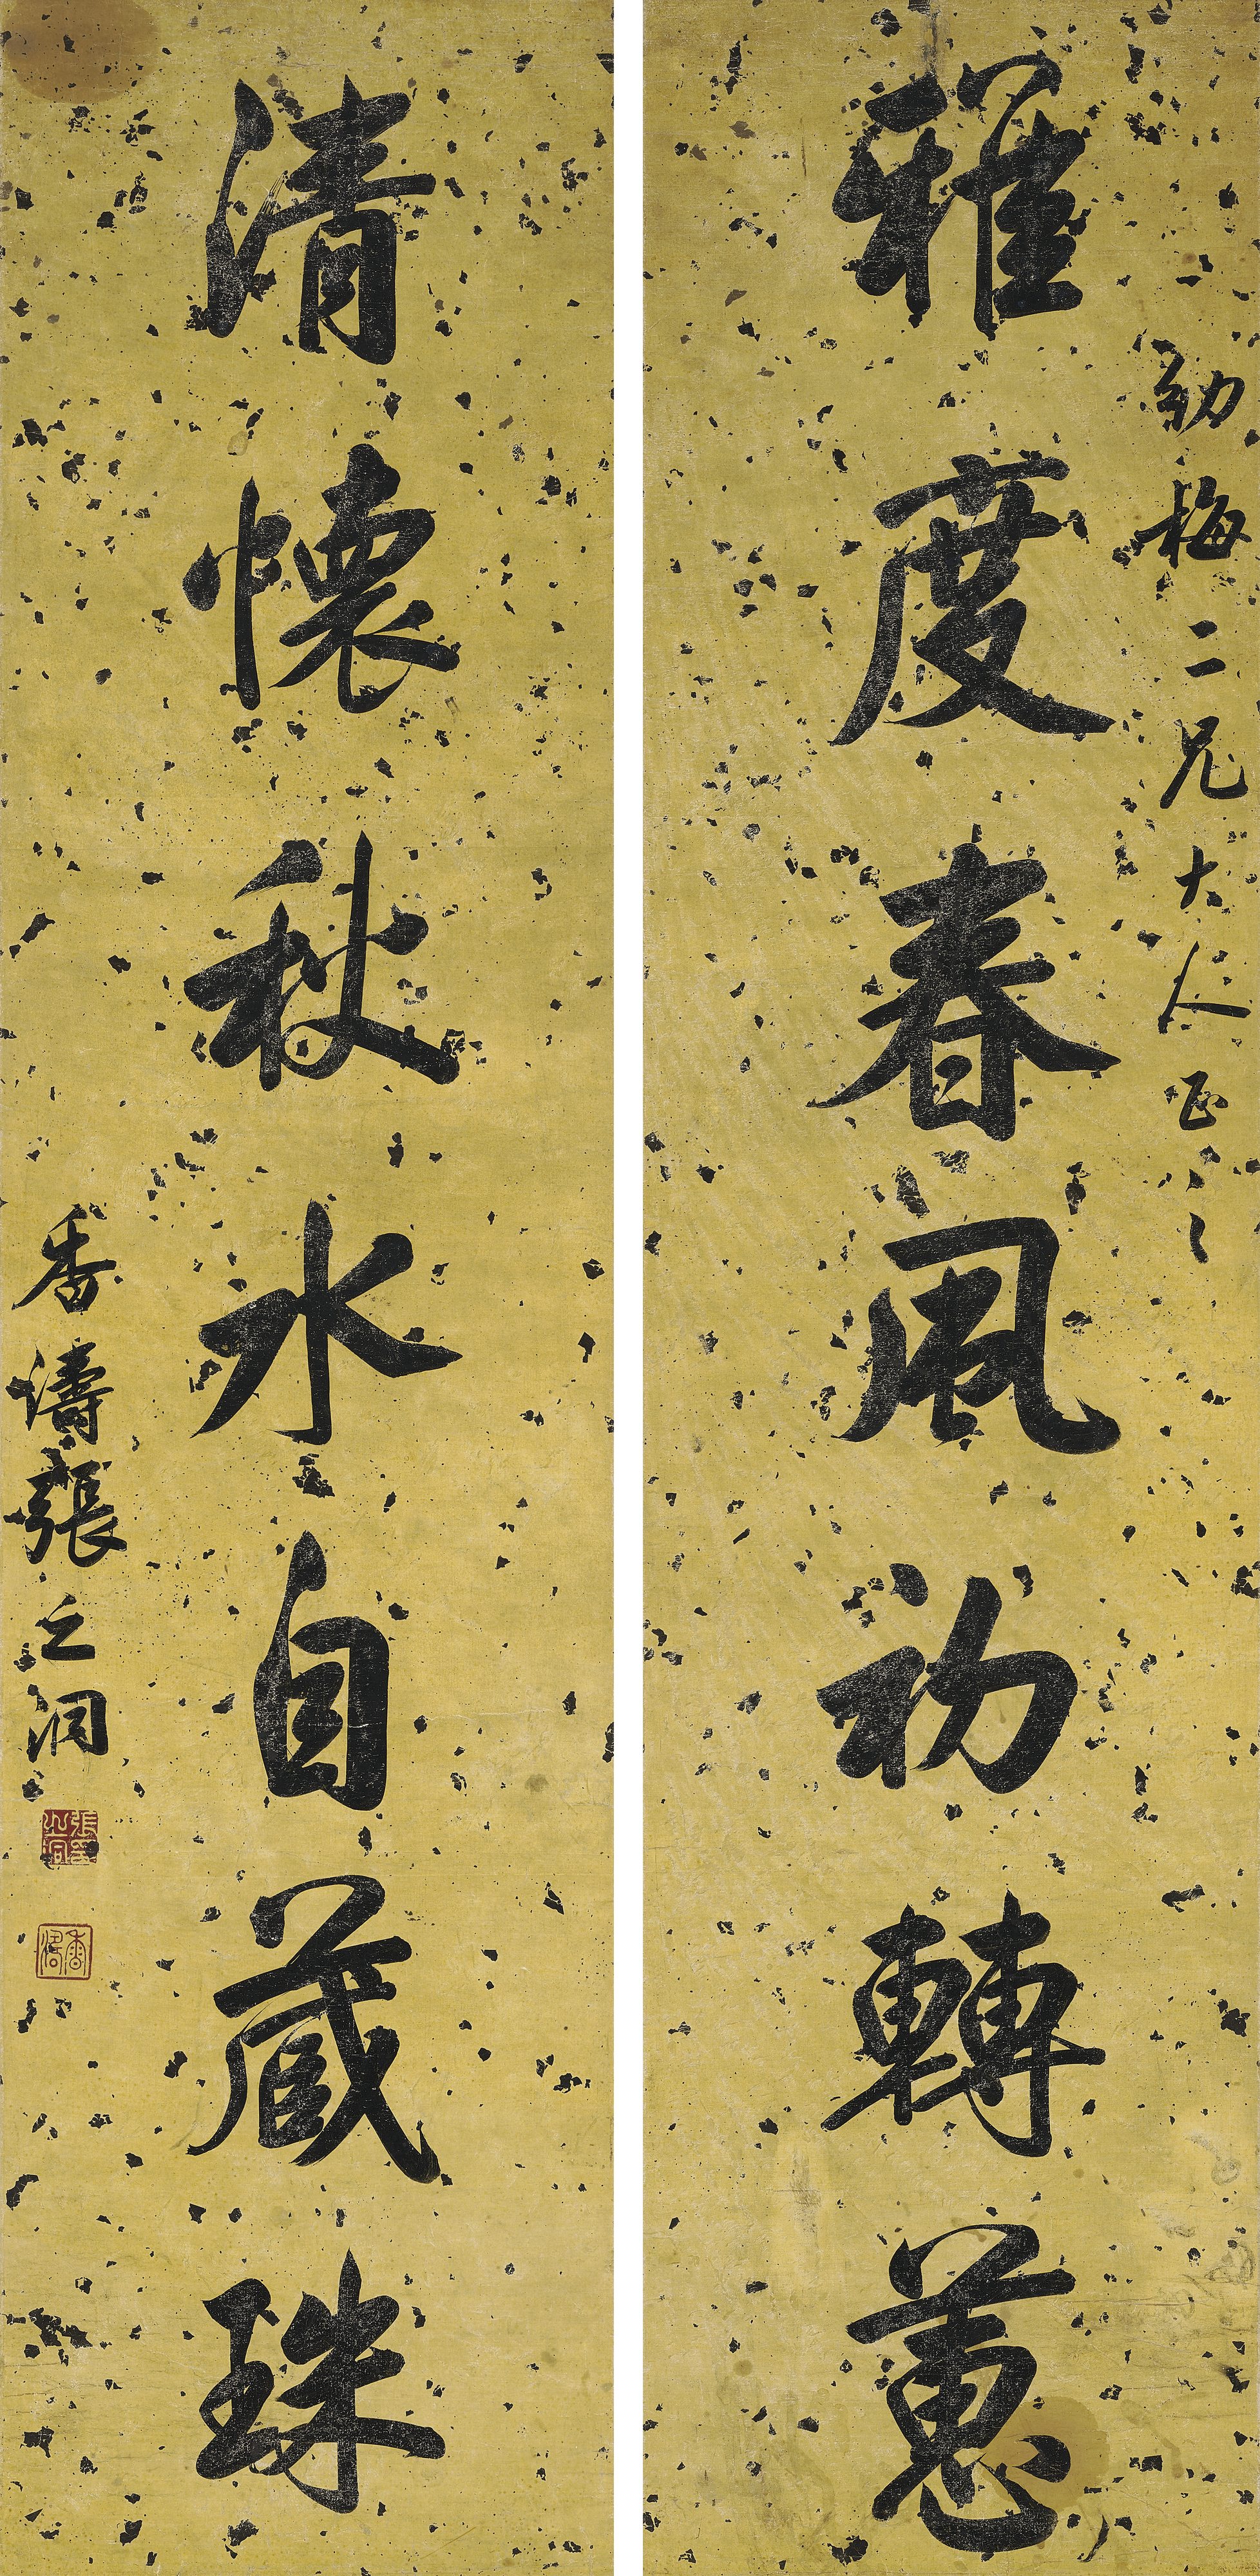 幼梅二兄大人正之
雅度春風初轉蕙
清懷秋水自藏珠
香濤張之洞
張之洞印
香濤